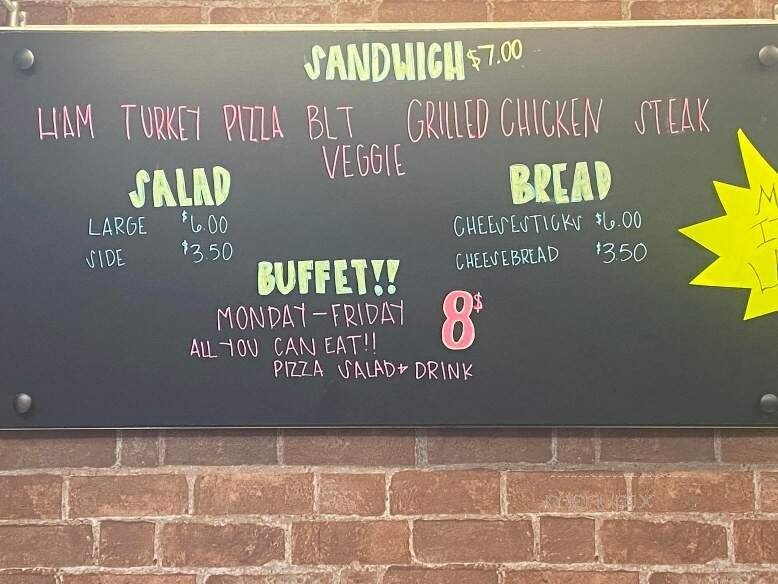 SANDWICH $7.00
HAM TURKEY PIZZA BLT GRILLED CHICKEN STEAK
VEGGIE
SALAD
LARGE $6.00
SIDE $3.50
BREAD
CHEESESTICKS $6.00
CHEESEBREAD $3.50
BUFFET!!
MONDAY-FRIDAY 8$
ALL YOU CAN EAT!!
PIZZA SALAD + DRINK